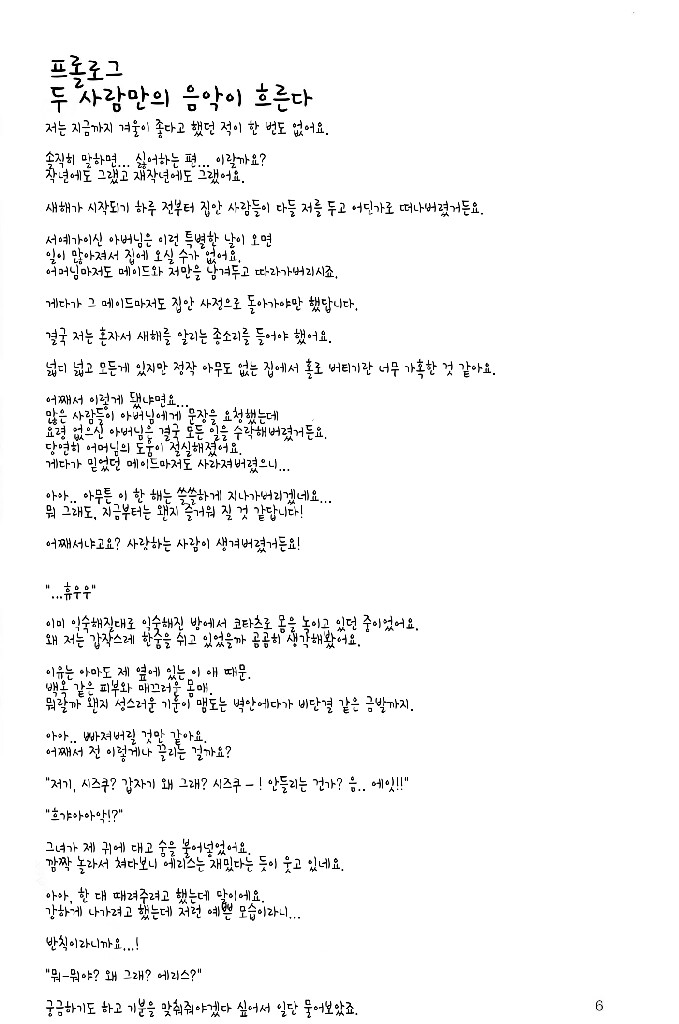 프롤로그
두 사람만의 음악이 흐른다
저는 지금까지 겨울이 좋다고 했던 적이 한 번도 없어요.
솔직히 말하면... 싫어하는 편... 이랄까요?
작년에도 그랬고 재작년에도 그랬어요.
새해가 시작되기 하루 전부터 집안 사람들이 다들 저를 두고 어딘가로 떠나버렸거든요.
서예가이신 아버님은 이런 특별한 날이 오면
일이 많아져서 집에 오실 수가 없어요.
어머님마저도 메이드와 저만을 남겨두고 따라가버리시죠.
게다가 그 메이드마저도 집안 사정으로 돌아가야만 했답니다.
결국 저는 혼자서 새해를 알리는 종소리를 들어야 했어요.
넓디 넓고 모든게 있지만 정작 아무도 없는 집에서 홀로 버티기란 너무 가혹한 것 같아요.
어째서 이렇게 됐냐면요...
많은 사람들이 아버님에게 문장을 요청했는데
요령 없으신 아버님은 결국 모든 일을 수락해버렸거든요.
당연히 어머님의 도움이 절실해졌어요.
게다가 믿었던 메이드마저도 사라져버렸으니...
아아.. 아무튼 이 한 해는 쓸쓸하게 지나가버리겠네요...
뭐 그래도, 지금부터는 왠지 즐거워 질 것 같답니다!
어째서냐고요? 사랑하는 사람이 생겨버렸거든요!
"...휴우우"
이미 익숙해질대로 익숙해진 방에서 코타츠로 몸을 녹이고 있던 중이었어요.
왜 저는 갑작스레 한숨을 쉬고 있었을까 곰곰히 생각해봤어요.
이유는 아마도 제 옆에 있는 이 애 때문.
백옥 같은 피부와 매끄러운 몸매.
뭐랄까 왠지 성스러운 기운이 맴도는 벽안에다가 비단결 같은 금발까지.
아아.. 빠져버릴 것만 같아요.
어째서 전 이렇게나 끌리는 걸까요?
"저기, 시즈쿠? 갑자기 왜 그래? 시즈쿠 - ! 안들리는 건가? 음.. 에잇!!"
"흐갸아아악!?"
그녀가 제 귀에 대고 숨을 불어넣었어요.
깜짝 놀라서 쳐다보니 에리스는 재밌다는 듯이 웃고 있네요.
아아, 한 대 때려주려고 했는데 말이에요.
강하게 나가려고 했는데 저런 예쁜 모습이라니...
반칙이라니까요...!
"뭐-뭐야? 왜 그래? 에리스?"
궁금하기도 하고 기분을 맞춰줘야겠다 싶어서 일단 물어보았죠.
6